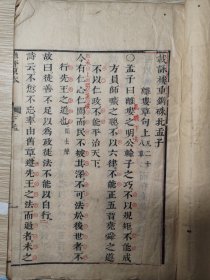 載詠樓重鐫硃批孟子
離婁章句上 凡二十八章
○孟子曰離婁之明公輸子之巧不以規矩不能成
方員師曠之聰不以六律不能正五音堯舜之道
不以仁政不能平治天下
今有仁心仁聞而民不被其澤不可法於後世者不
行先王之道也
故曰徒善不足以爲政徒法不能以自行
詩云不愆不忘率由舊章遵先王之法而過者未之